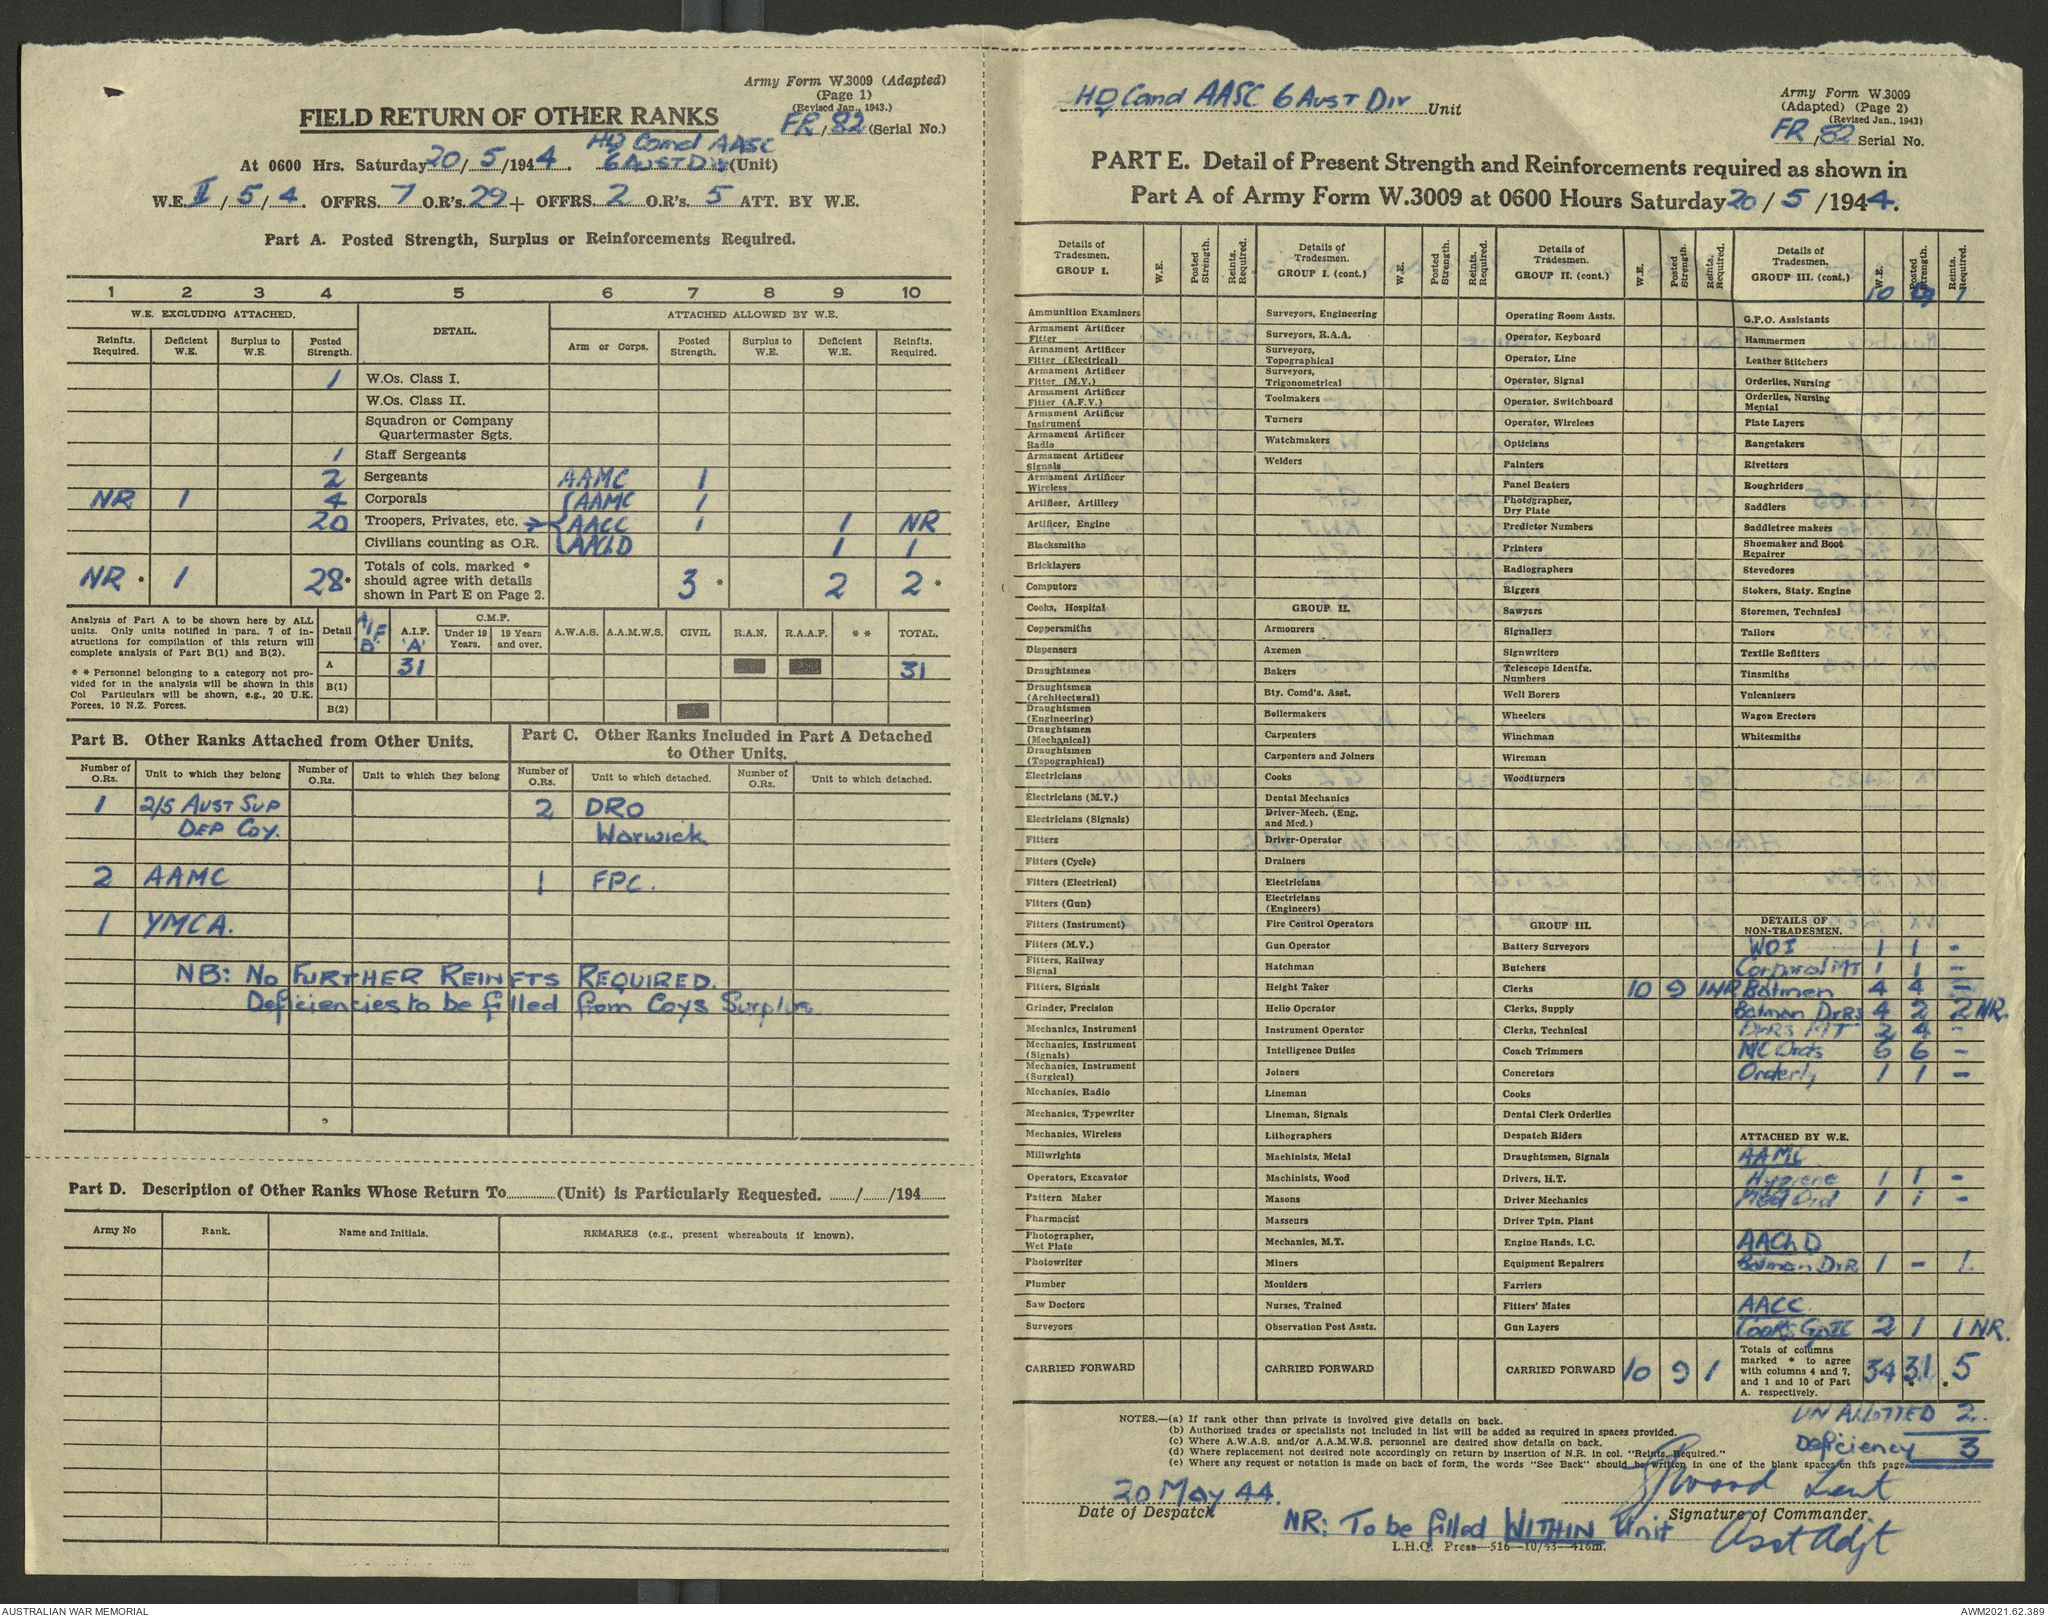 Army Form W.3009 (Adapted)
(Page 1)
(Revised Jan., 1943.)
FIELD RETURN OF OTHER RANKS
FR/82 (Serial No.)
HQ Comd AASC
At 0600 Hrs. Saturday 20/5/1944. 6 AUST DIV (Unit)
W.E. II/5/4. OFFRS. 7 O.R's. 29 + OFFRS. 2 O.R's. 5 ATT. BY W.E.
Part A. Posted Strength, Surplus or Reinforcements Required.
1 2 3 4 5 6 7 8 9 10
W.E. EXCLUDING ATTACHED. DETAIL. ATTACHED ALLOWED BY W.E.
Reinfts. Required. Deficient W.E. Surplus to W.E. Posted Strength. Arm or Corps. Posted Strength. Surplus to W.E. Deficient W.E. Reinfts. Required.
1 W.Os. Class I.
W.Os. Class II.
Squadron or Company
Quartermaster Sgts.
1 Staff Sergeants
2 Sergeants AAMC 1
NR 1 4 Corporals AAMC 1
20 Troopers, Privates, etc. AACC 1 1 NR
Civilians counting as O.R. AAChD 1 1
NR * 1 28 * Totals of cols. marked * should agree with details shown in Part E on Page 2. 3 * 2 2 *
Analysis of Part A to be shown here by ALL
units. Only units notified in para. 7 of in-
structions for compilation of this return will
complete analysis of Part B(1) and B(2).
* * Personnel belonging to a category not pro-
vided for in the analysis will be shown in this
Col Particulars will be shown, e.g., 20 U.K.
Forces, 10 N.Z. Forces.
Detail AIF 'B' A.I.F. 'A' C.M.F. Under 19 Years. 19 Years and over. A.W.A.S. A.A.M.W.S. CIVIL R.A.N. R.A.A.F. * * TOTAL.
A 31 31
B(1)
B(2)
Part B. Other Ranks Attached from Other Units.
Part C. Other Ranks Included in Part A Detached
to Other Units.
Number of O.Rs. Unit to which they belong Number of O.Rs. Unit to which they belong Number of O.Rs. Unit to which detached. Number of O.Rs. Unit to which detached.
1 2/5 AUST SUP 2 DRO
DEP COY. Warwick
2 AAMC 1 FPC.
1 YMCA.
NB: NO FURTHER REINFTS REQUIRED.
Deficiencies to be filled from Coys Surplus
Part D. Description of Other Ranks Whose Return To............(Unit) is Particularly Requested. ....../....../194......
Army No Rank. Name and Initials. REMARKS (e.g., present whereabouts if known).
HQ Comd AASC 6 AUST DIV Unit
Army Form W.3009
(Adapted) (Page 2)
(Revised Jan., 1943)
FR/82 Serial No.
PART E. Detail of Present Strength and Reinforcements required as shown in
Part A of Army Form W.3009 at 0600 Hours Saturday 20/5/1944.
Details of Tradesmen. GROUP I. W.E. Posted Strength. Reints. Required.
Ammunition Examiners
Armament Artificer Fitter
Armament Artificer Fitter (Electrical)
Armament Artificer Fitter (M.V.)
Armament Artificer Fitter (A.F.V.)
Armament Artificer Instrument
Armament Artificer Radio
Armament Artificer Signals
Armament Artificer Wireless
Artificer, Artillery
Artificer, Engine
Blacksmiths
Bricklayers
Computors
Cooks, Hospital
Coppersmiths
Dispensers
Draughtsmen
Draughtsmen (Architectural)
Draughtsmen (Engineering)
Draughtsmen (Mechanical)
Draughtsmen (Topographical)
Electricians
Electricians (M.V.)
Electricians (Signals)
Fitters
Fitters (Cycle)
Fitters (Electrical)
Fitters (Gun)
Fitters (Instrument)
Fitters (M.V.)
Fitters, Railway Signal
Fitters, Signals
Grinder, Precision
Mechanics, Instrument
Mechanics, Instrument (Signals)
Mechanics, Instrument (Surgical)
Mechanics, Radio
Mechanics, Typewriter
Mechanics, Wireless
Millwrights
Operators, Excavator
Pattern Maker
Pharmacist
Photographer, Wet Plate
Photowriter
Plumber
Saw Doctors
Surveyors
CARRIED FORWARD
Details of Tradesmen. GROUP I. (cont.) W.E. Posted Strength. Reints. Required.
Surveyors, Engineering
Surveyors, R.A.A.
Surveyors, Topographical
Surveyors, Trigonometrical
Toolmakers
Turners
Watchmakers
Welders
GROUP II.
Armourers
Axemen
Bakers
Bty. Comd's. Asst.
Boilermakers
Carpenters
Carpenters and Joiners
Cooks
Dental Mechanics
Driver-Mech. (Eng. and Med.)
Driver-Operator
Drainers
Electricians
Electricians (Engineers)
Fire Control Operators
Gun Operator
Hatchman
Height Taker
Helio Operator
Instrument Operator
Intelligence Duties
Joiners
Lineman
Lineman, Signals
Lithographers
Machinists, Metal
Machinists, Wood
Masons
Masseurs
Mechanics, M.T.
Miners
Moulders
Nurses, Trained
Observation Post Assts.
CARRIED FORWARD
Details of Tradesmen. GROUP II. (cont.) W.E. Posted Strength. Reints. Required.
Operating Room Assts.
Operator, Keyboard
Operator, Line
Operator, Signal
Operator, Switchboard
Operator, Wireless
Opticians
Painters
Panel Beaters
Photographer, Dry Plate
Predictor Numbers
Printers
Radiographers
Riggers
Sawyers
Signallers
Signwriters
Telescope Identfn. Numbers
Well Borers
Wheelers
Winchman
Wireman
Woodturners
GROUP III.
Battery Surveyors
Butchers
Clerks 10 9 1NR
Clerks, Supply
Clerks, Technical
Coach Trimmers
Concretors
Cooks
Dental Clerk Orderlies
Despatch Riders
Draughtsmen, Signals
Drivers, H.T.
Driver Mechanics
Driver Tptn. Plant
Engine Hands, I.C.
Equipment Repairers
Farriers
Fitters' Mates
Gun Layers
CARRIED FORWARD 10 9 1
Details of Tradesmen. GROUP III. (cont.) W.E. Posted Strength. Reints. Required.
10 9 1
G.P.O. Assistants
Hammermen
Leather Stitchers
Orderlies, Nursing
Orderlies, Nursing Mental
Plate Layers
Rangetakers
Rivetters
Roughriders
Saddlers
Saddletree makers
Shoemaker and Boot Repairer
Stevedores
Stokers, Staty. Engine
Storemen, Technical
Tailors
Textile Refitters
Tinsmiths
Vulcanizers
Wagon Erectors
Whitesmiths
DETAILS OF NON-TRADESMEN.
WOI 1 1 -
Corporal MT 1 1 -
Batmen 4 4 -
Batman DvRs 4 2 2 NR.
DvRs MT 2 4 -
N/C Ords 6 6 -
Orderly 1 1 -
ATTACHED BY W.E.
AAMC
Hygiene 1 1 -
Med Ord 1 1 -
AAChD
Batman DvR 1 - 1.
AACC.
Cooks Gp II 2 1 1 NR.
Totals of columns marked * to agree with columns 4 and 7, and 1 and 10 of Part A. respectively. 34 31 * 5 *
UNALLOTTED 2.
Deficiency 3
NOTES.—(a) If rank other than private is involved give details on back.
(b) Authorised trades or specialists not included in list will be added as required in spaces provided.
(c) Where A.W.A.S. and/or A.A.M.W.S. personnel are desired show details on back.
(d) Where replacement not desired note accordingly on return by insertion of N.R. in col. "Reints. Required."
(e) Where any request or notation is made on back of form, the words "See Back" should be written in one of the blank spaces on this page.
20 May 44. Wood Lieut
Date of Despatch Signature of Commander.
NR: To be filled WITHIN Unit Asst Adjt
L.H.Q. Press—516—10/43—416m.
AUSTRALIAN WAR MEMORIAL
AWM2021.62.389